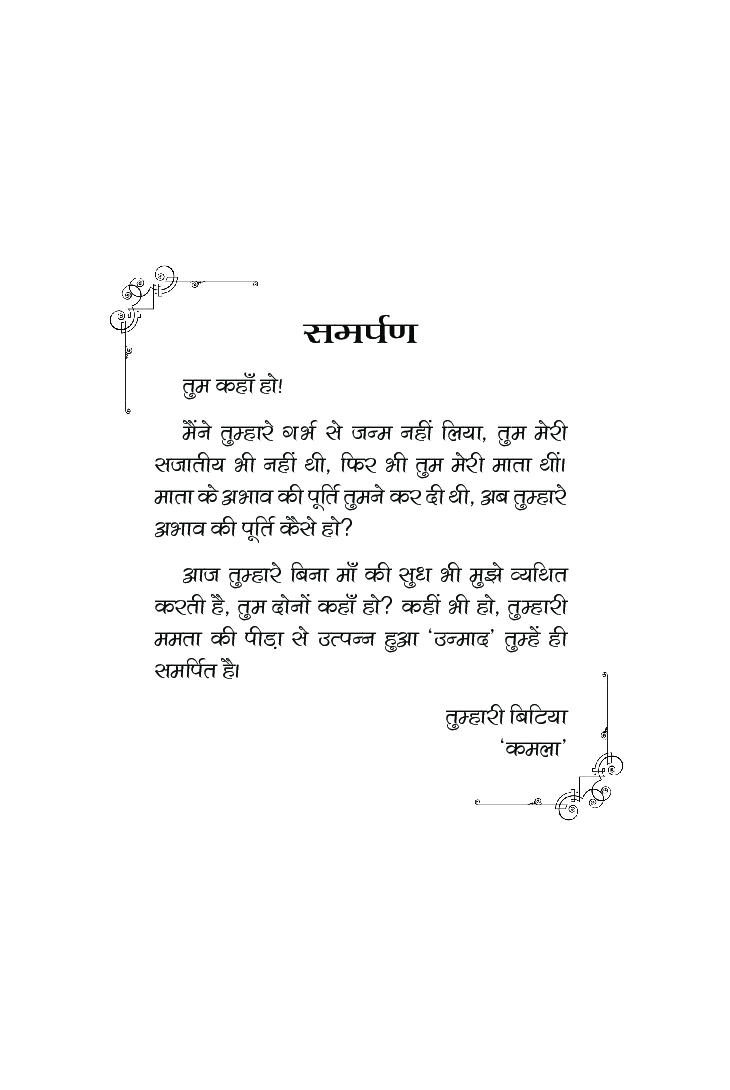 समर्पण
तुम कहाँ हो!
मैंने तुम्हारे गर्भ से जन्म नहीं लिया, तुम मेरी
सजातीय भी नहीं थी, फिर भी तुम मेरी माता थीं।
माता के अभाव की पूर्ति तुमने कर दी थी, अब तुम्हारे
अभाव की पूर्ति कैसे हो?
आज तुम्हारे बिना माँ की सुध भी मुझे व्यथित
करती है, तुम दोनों कहाँ हो? कहीं भी हो, तुम्हारी
ममता की पीड़ा से उत्पन्न हुआ ‘उन्माद’ तुम्हें ही
समर्पित है।
तुम्हारी बिटिया
‘कमला’